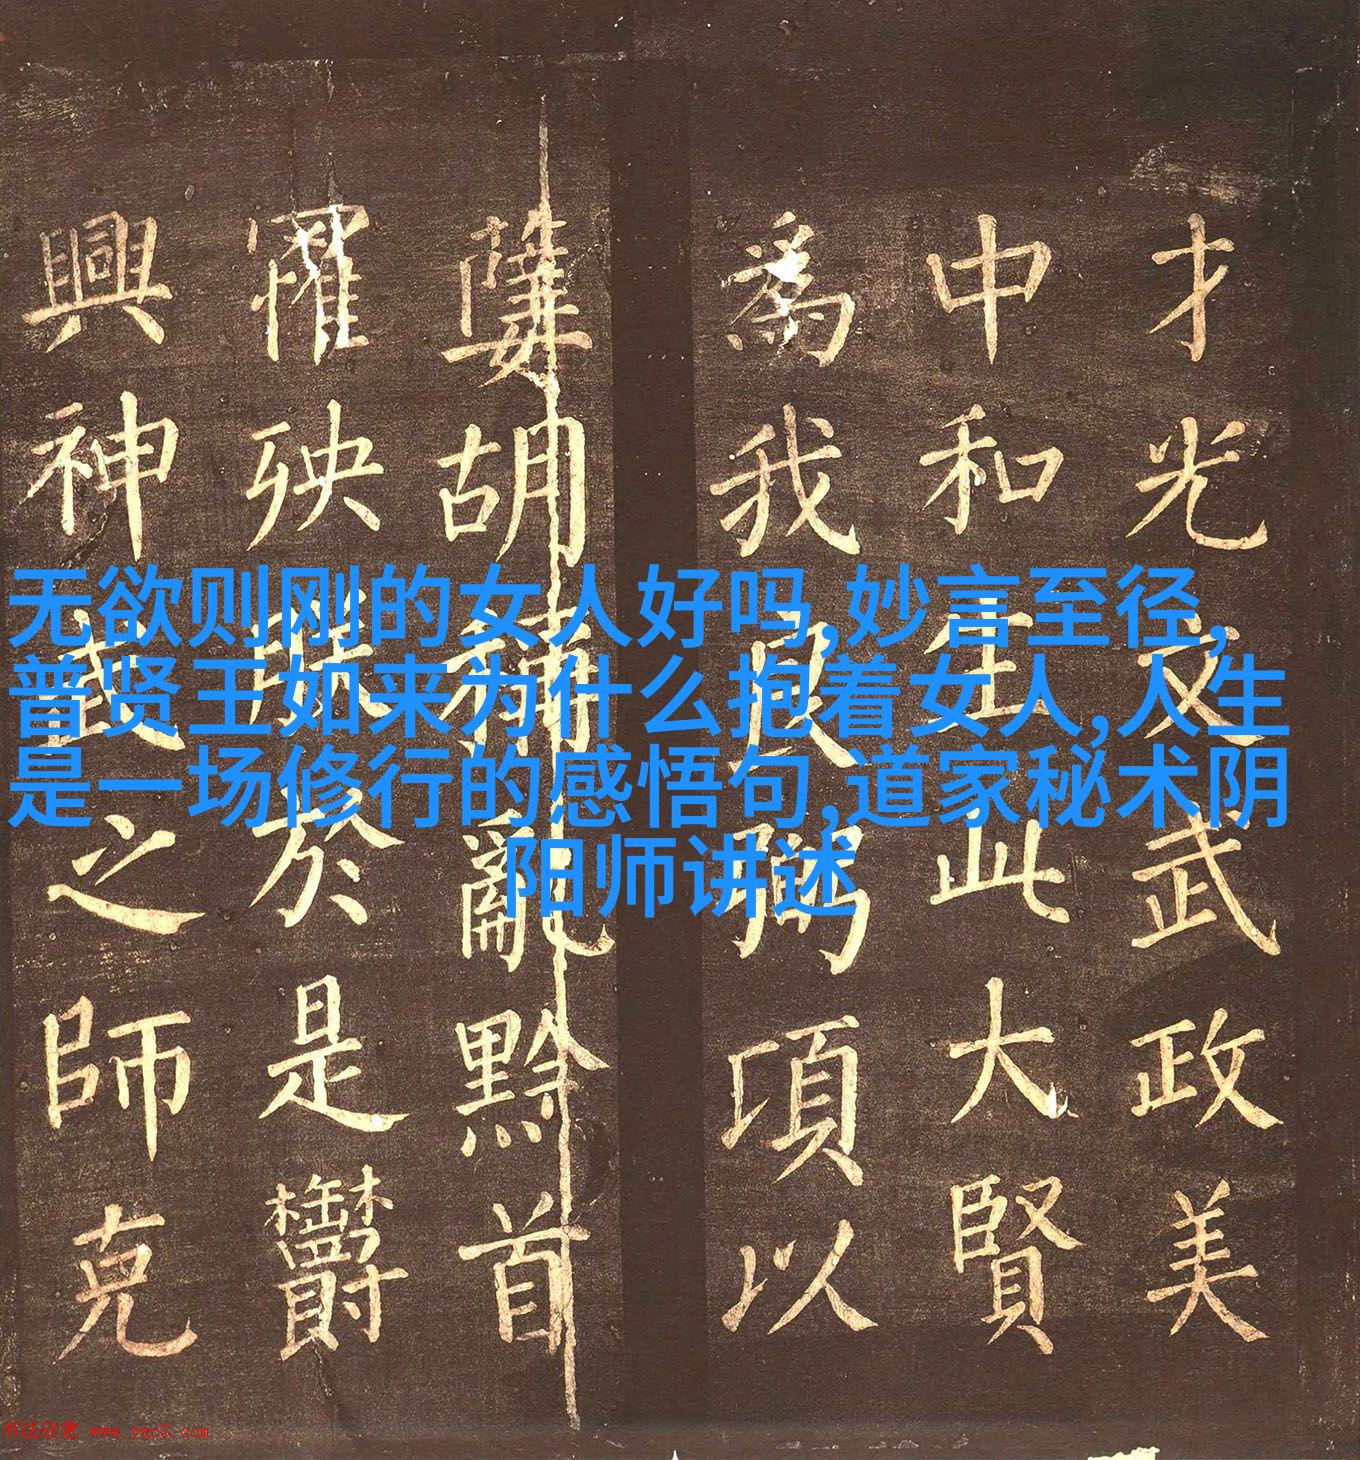 无欲则刚的女人好吗,妙言至径,
普贤王如来为什么抱着女人,人生
是一场修行的感悟句,道家秘术阴
阳师讲述
才光文武政美
中和生此大賢
為我良弼項以
胡稱亂黔首
罹殃於是鬱
興神武之師克
书法欣赏 www.yac8.com